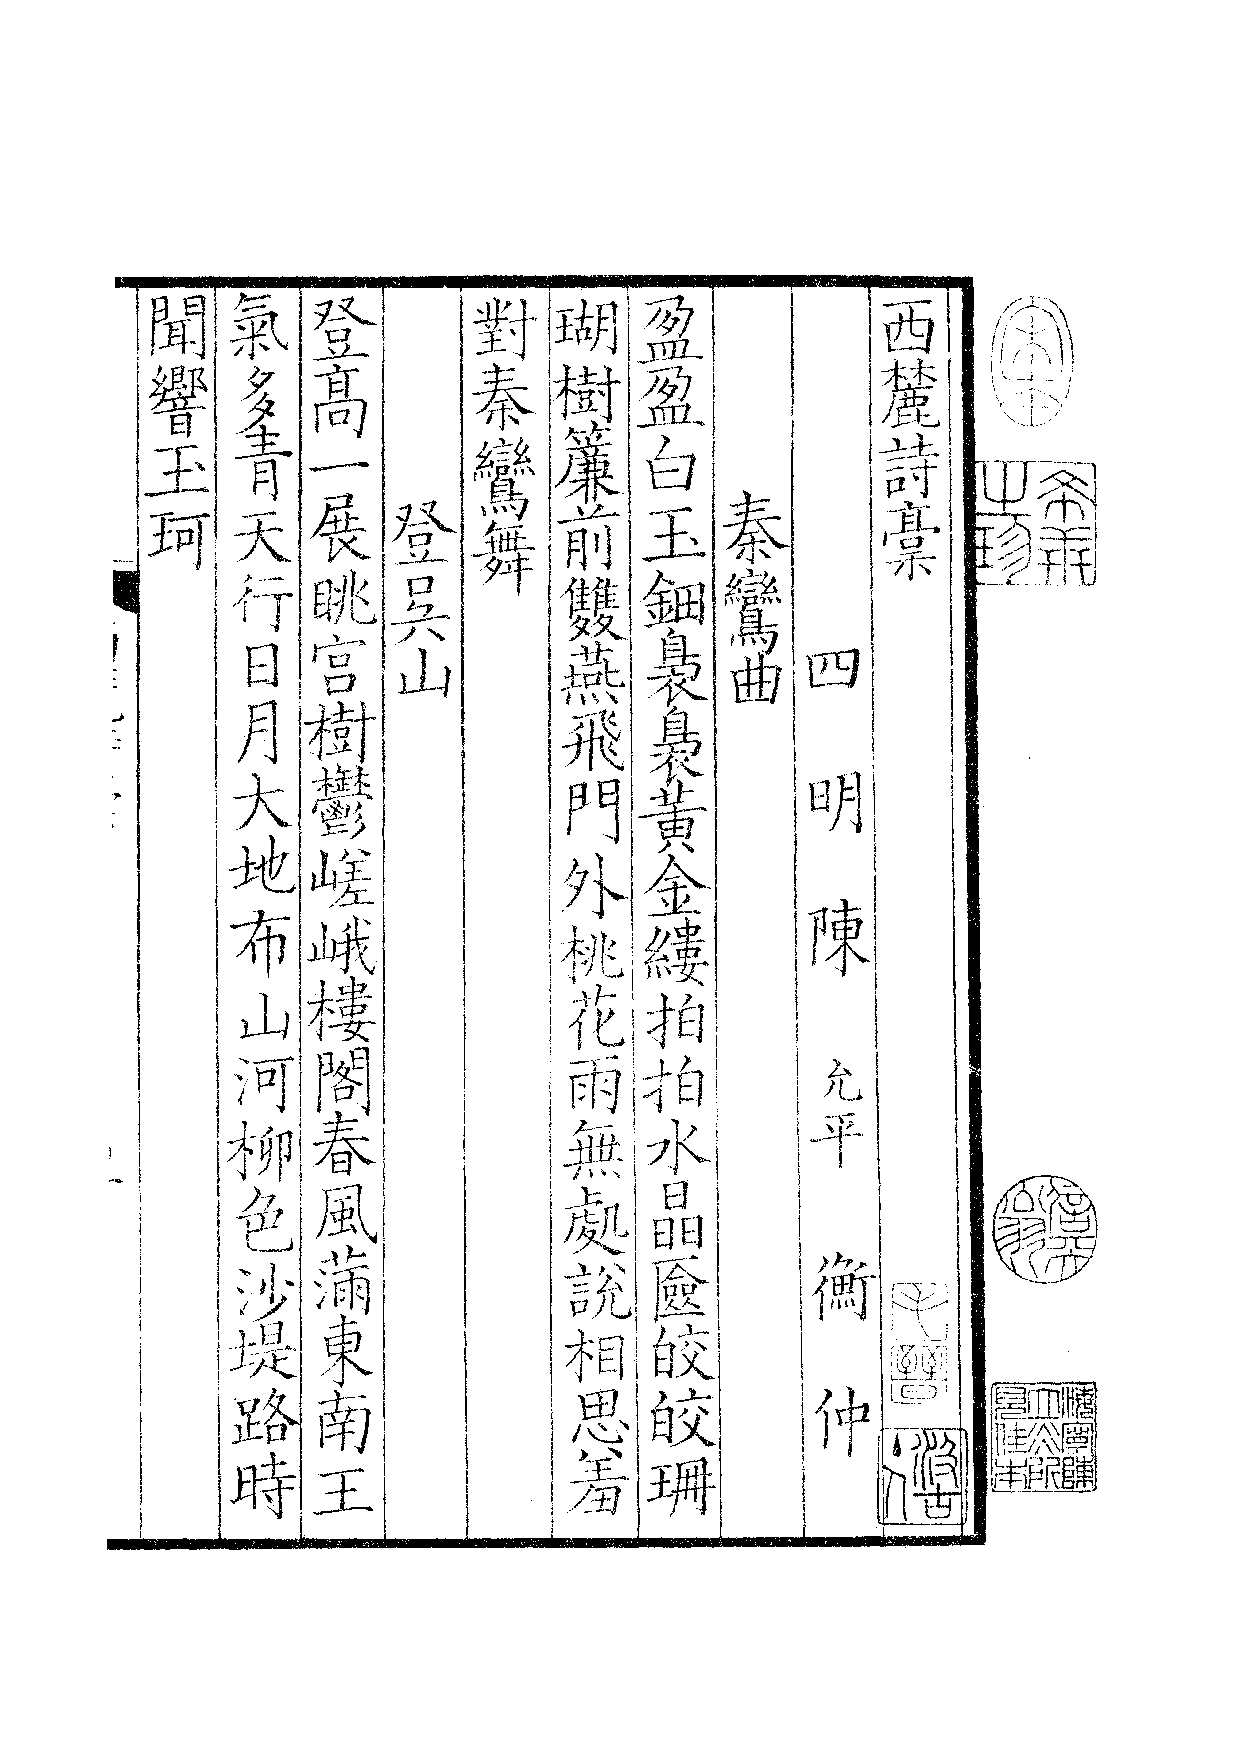 西麓詩稾
四明陳允平衡仲
秦鸞曲
盈盈白玉鈿裊裊黃金縷拍拍水晶匳皎皎珊
瑚樹簾前雙燕飛門外桃花雨無處說相思羞
對秦鸞舞
登吳山
登高一展眺宮樹鬱嵯峨樓閣春風滿東南王
氣多青天行日月大地布山河柳色沙堤路時
聞響玉珂